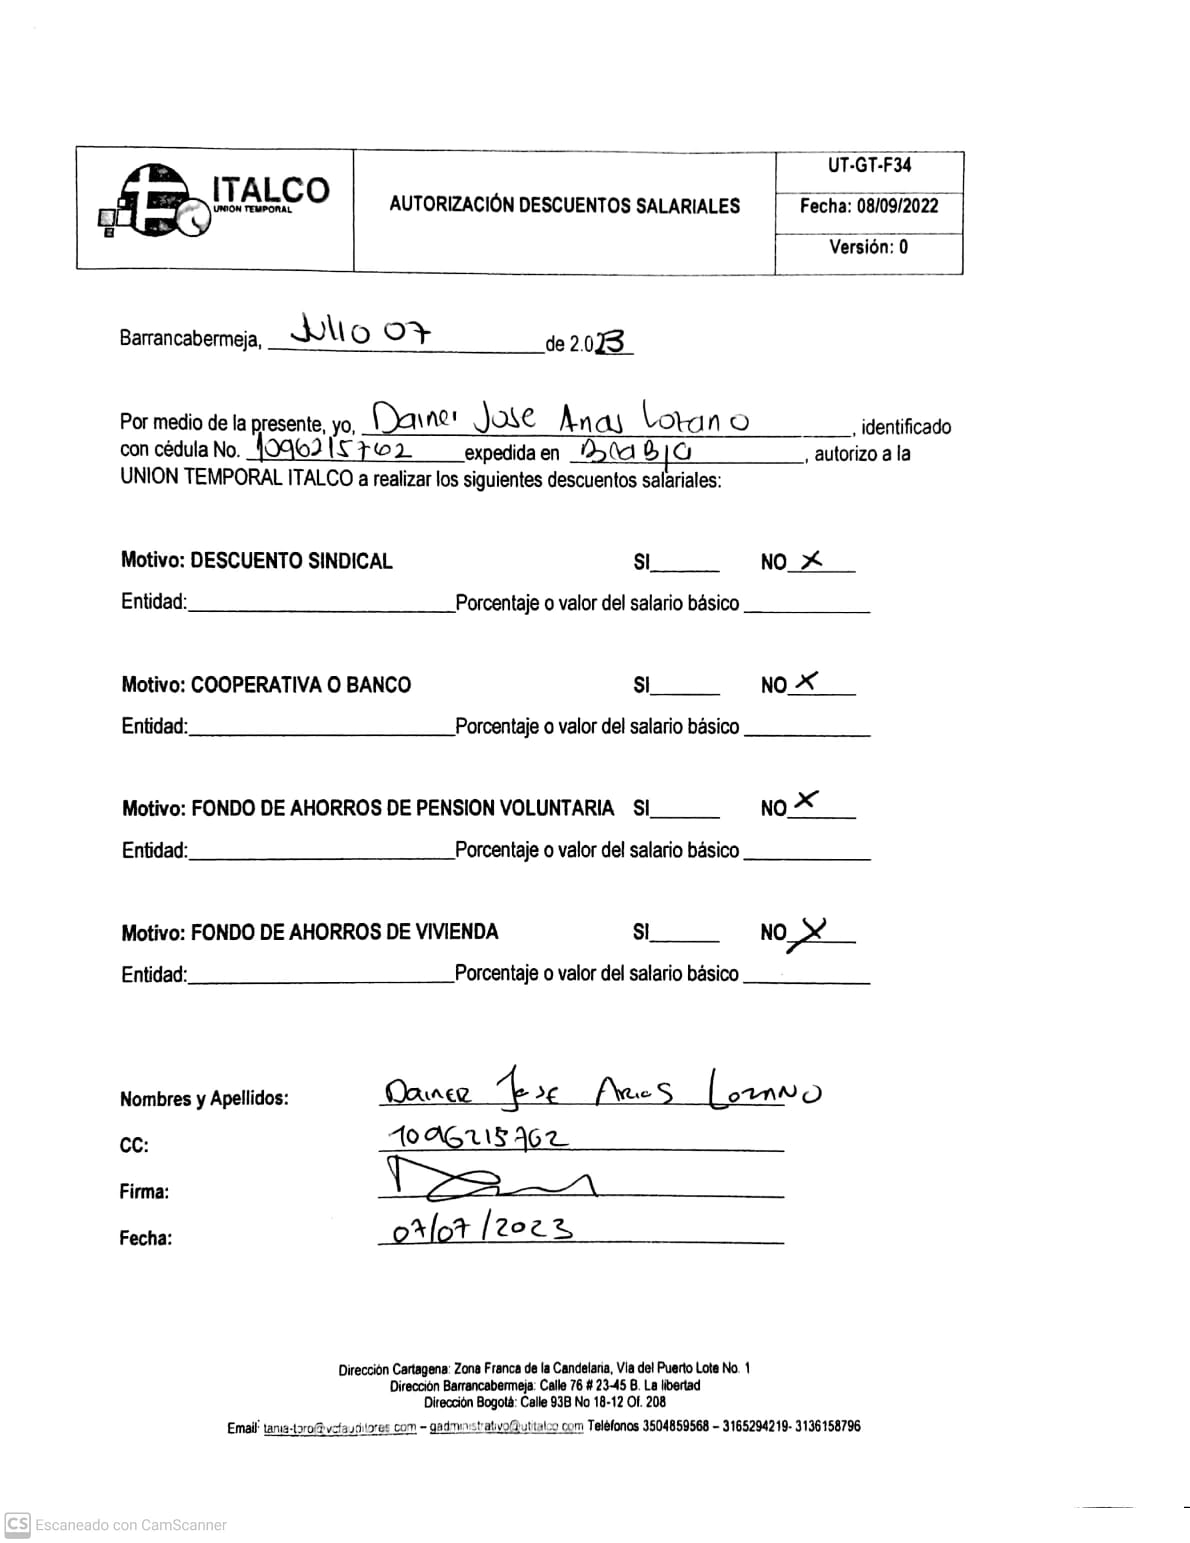 ITALCO
UNION TEMPORAL
AUTORIZACIÓN DESCUENTOS SALARIALES
UT-GT-F34
Fecha: 08/09/2022
Versión: 0
Barrancabermeja, Julio 07 de 2.023
Por medio de la presente, yo, Dainer Jose Arias Lozano, identificado
con cédula No. 1096215762 expedida en B/ca B/ja, autorizo a la
UNION TEMPORAL ITALCO a realizar los siguientes descuentos salariales:
Motivo: DESCUENTO SINDICAL SI______ NO X
Entidad:______ Porcentaje o valor del salario básico ______
Motivo: COOPERATIVA O BANCO SI______ NO X
Entidad:______ Porcentaje o valor del salario básico ______
Motivo: FONDO DE AHORROS DE PENSION VOLUNTARIA SI______ NO X
Entidad:______ Porcentaje o valor del salario básico ______
Motivo: FONDO DE AHORROS DE VIVIENDA SI______ NO X
Entidad:______ Porcentaje o valor del salario básico ______
Nombres y Apellidos: Dainer Jose Arias Lozano
CC: 1096215762
Firma:
Fecha: 07/07/2023
Dirección Cartagena: Zona Franca de la Candelaria, Vía del Puerto Lote No. 1
Dirección Barrancabermeja: Calle 76 # 23-45 B. La libertad
Dirección Bogotá: Calle 93B No 18-12 Of. 208
Email: tania-toro@vcfauditores.com – gadministrativo@utitalco.com Teléfonos 3504859568 – 3165294219- 3136158796
CS Escaneado con CamScanner